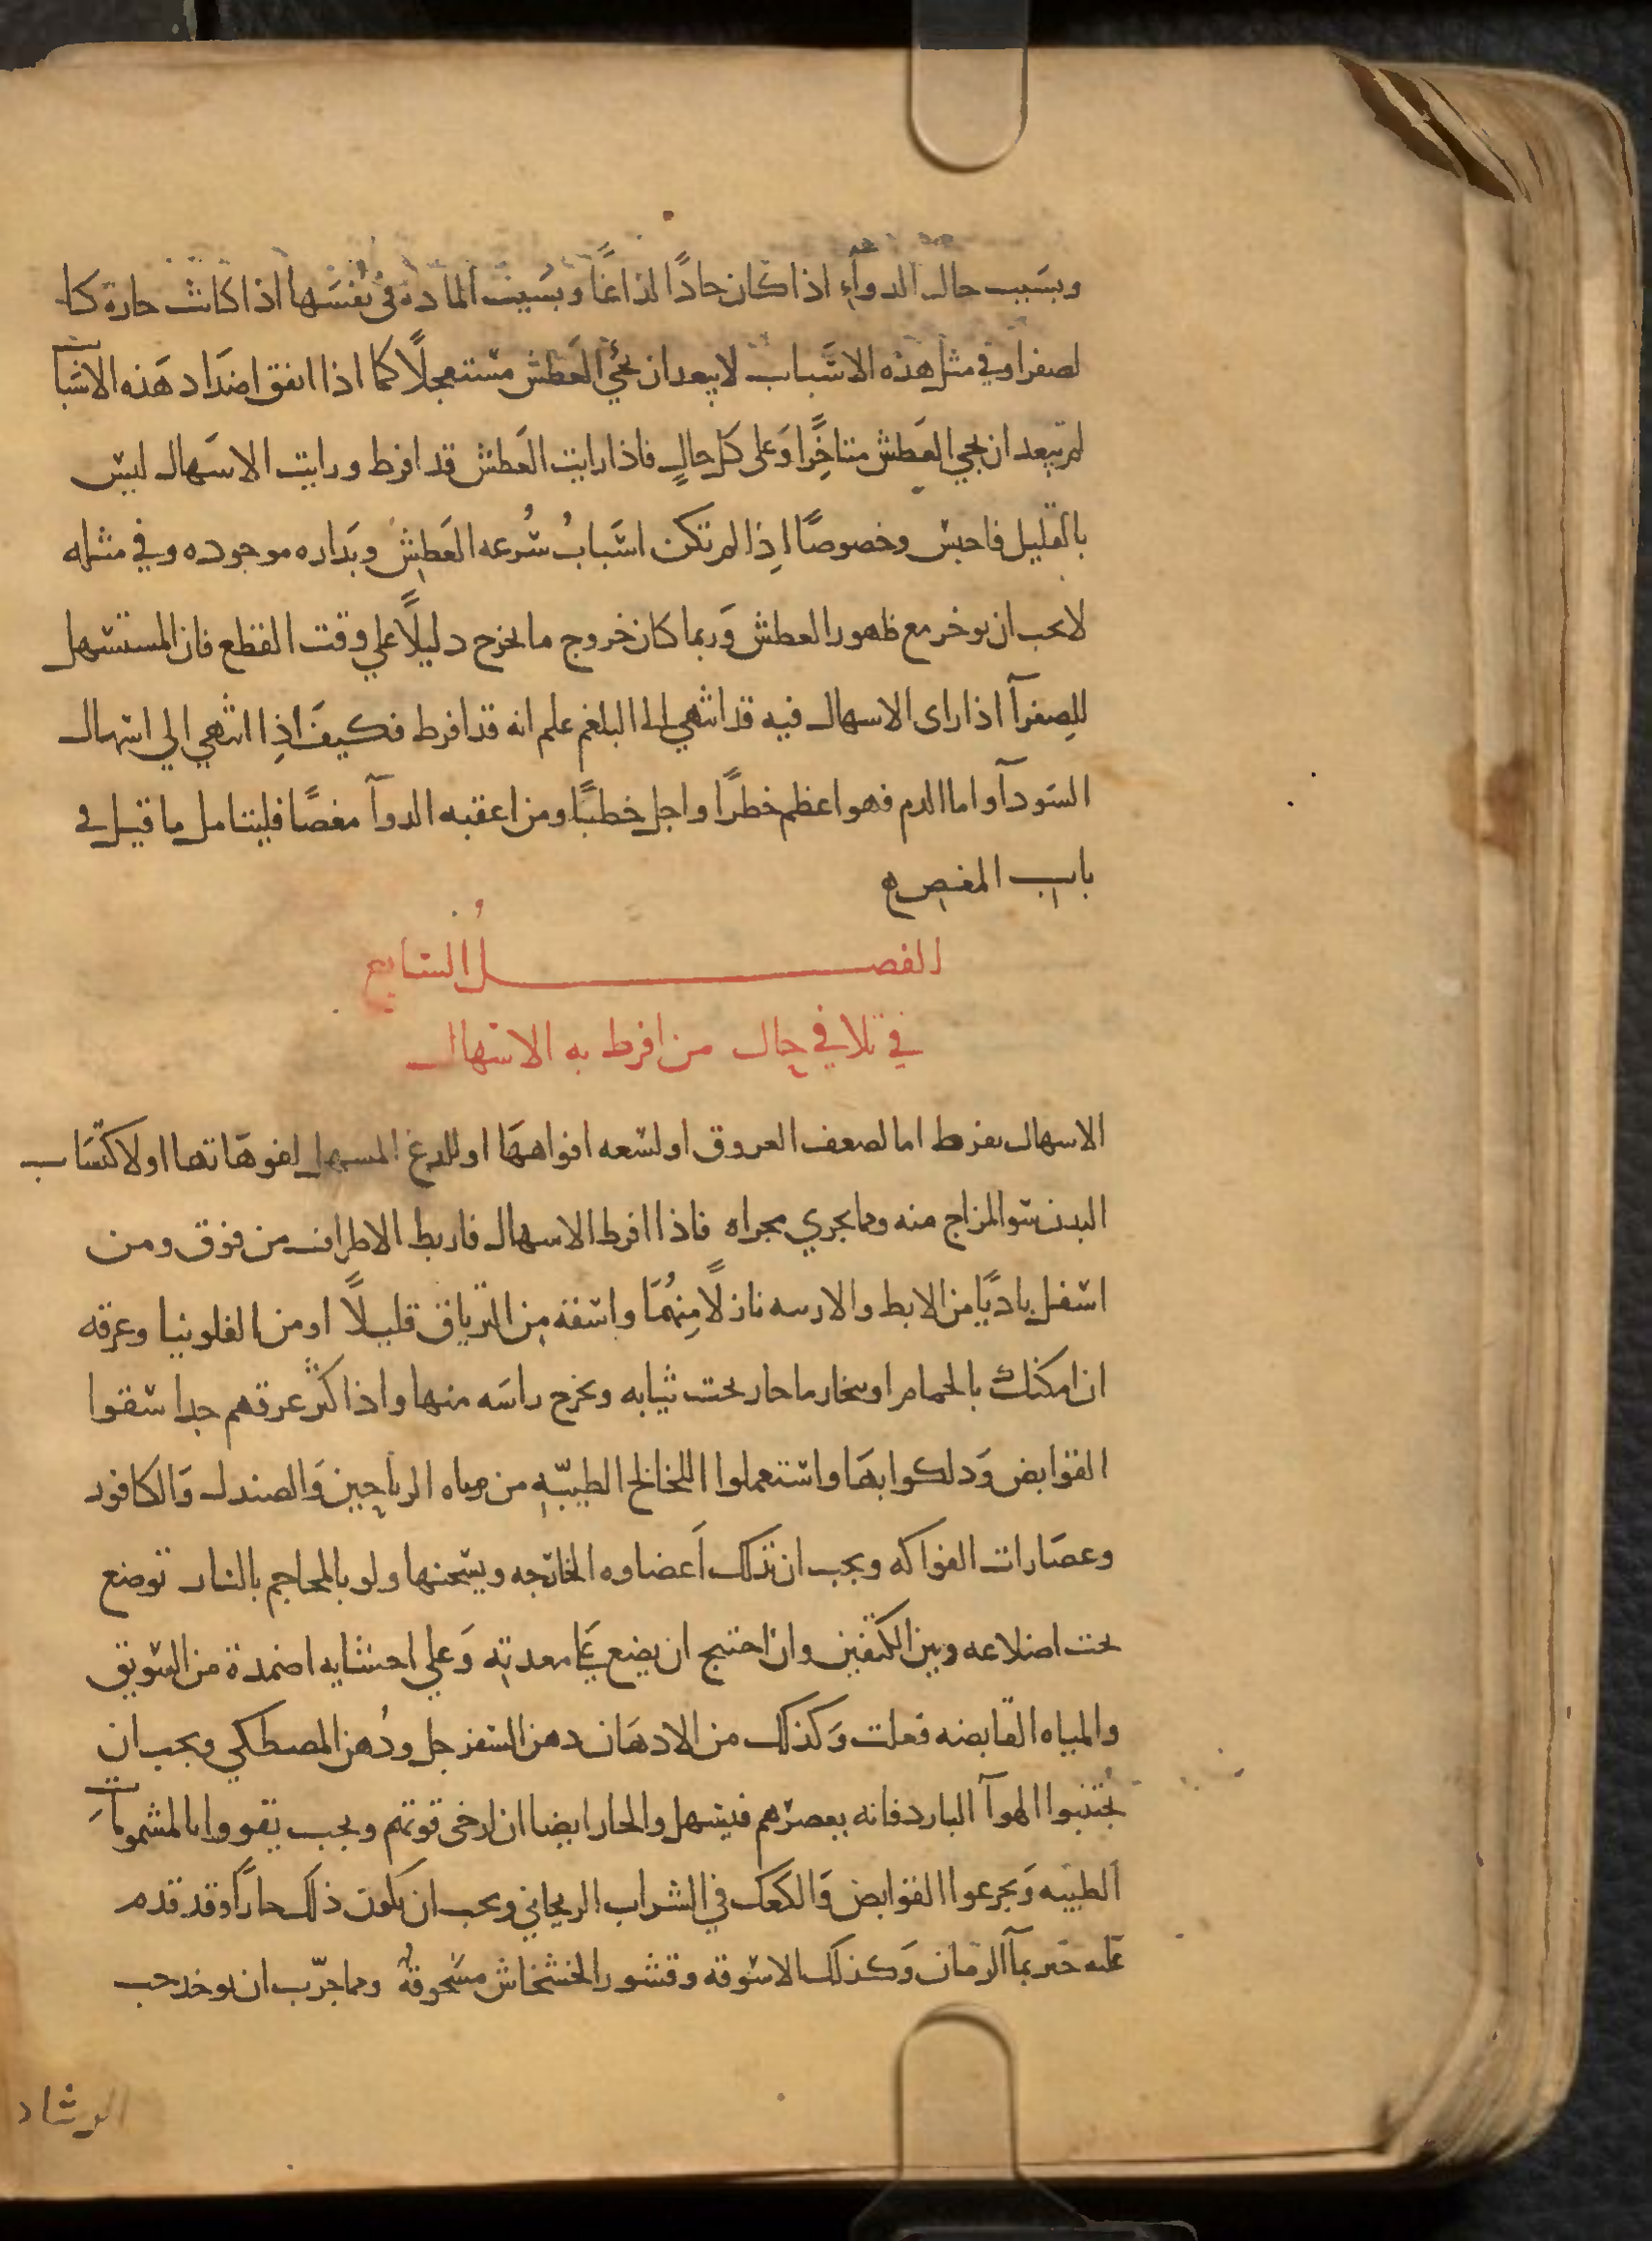 وبسبب حال الدوآءِ اذا كان حادًا لذاعًا وبسبب المادة في نفسها اذا كانت حارة كا
لصفرا وفي مثل هذه الاسباب لا يبعد ان يجي العطش مستعجلًا كما اذا اتفق اضداد هذه الاسبا
لم يبعد ان يجي العطش متاخِّرا وعلى كل حالٍ فاذا رايت العطش قد افرط ورايت الاسهال ليس
بالقليل فاحبس وخصوصًا اِذا لم تكن اسبابُ سُرعه العطش وبداره موجوده وفي مثله
لا يجب ان يوخر مع ظهور العطش وربما كان خروج ما يخرج دليلًا علي وقت القطع فان المستسهل
للصِفرآ اذا راى الاسهال فيه قد انتهي الى البلغم علم انه قد افرط فكيف اذِا انتهي الي اسهال
السودآ واما الدم فهو اعظم خطرًا واجل خطبًا ومن اعقبه الدوآ مغصًا فليتامل ما قيل في
باب المغص
الفصل السابع
في تلافي حال من افرط به الاسهال
الاسهال يفرط اما لضعف العروق او لسعه افواهها او للدغ المسهل لفوهاتها او لاكتساب
البدن سو المزاج منه وما يجري مجراه فاذا افرط الاسهال فاربط الاطراف من فوق ومن
اسفل باديًا من الابط والاربيه نازلًا مِنهُما واسقه من الترياق قليلًا او من الفلونيا وعرقه
ان امكنك بالحمام او ببخار ما حار تحت ثيابه ويخرج راسه منها واذا كثر عرقهم جدا سقوا
القوابض ودلكوا بها واستعملوا اللخالخ الطيبّه من مياه الرياحين والصندل والكافور
وعصارات الفواكه ويجب ان تدلك اعضاوه الخارجه ويسخنها ولو بالمحاجم بالنار توضع
تحت اضلاعه وبين الكتفين وان احتيج ان يضع على معدته وعلي احشايه اضمدة من السويق
والمياه القابضه فعلت وكذلك من الادهان دهن السفرجل ودُهن المصطكي ويجب ان
يُجتنبوا الهوآ البارد فانه يعصرهم فيسهل والحار ايضا ان ارخى قوتهم ويجب يقووا بالمشمومات
الطيبه ويجرعوا القوابض والكعك في الشراب الريحاني ويجب ان يكون ذلك حارًا وقد قدم
عليه خبز بمآ الرمان وكذلك الاسوقه وقشور الخشخاش مسحوقهً ومما جرّب ان يوخد حب
الرشاد